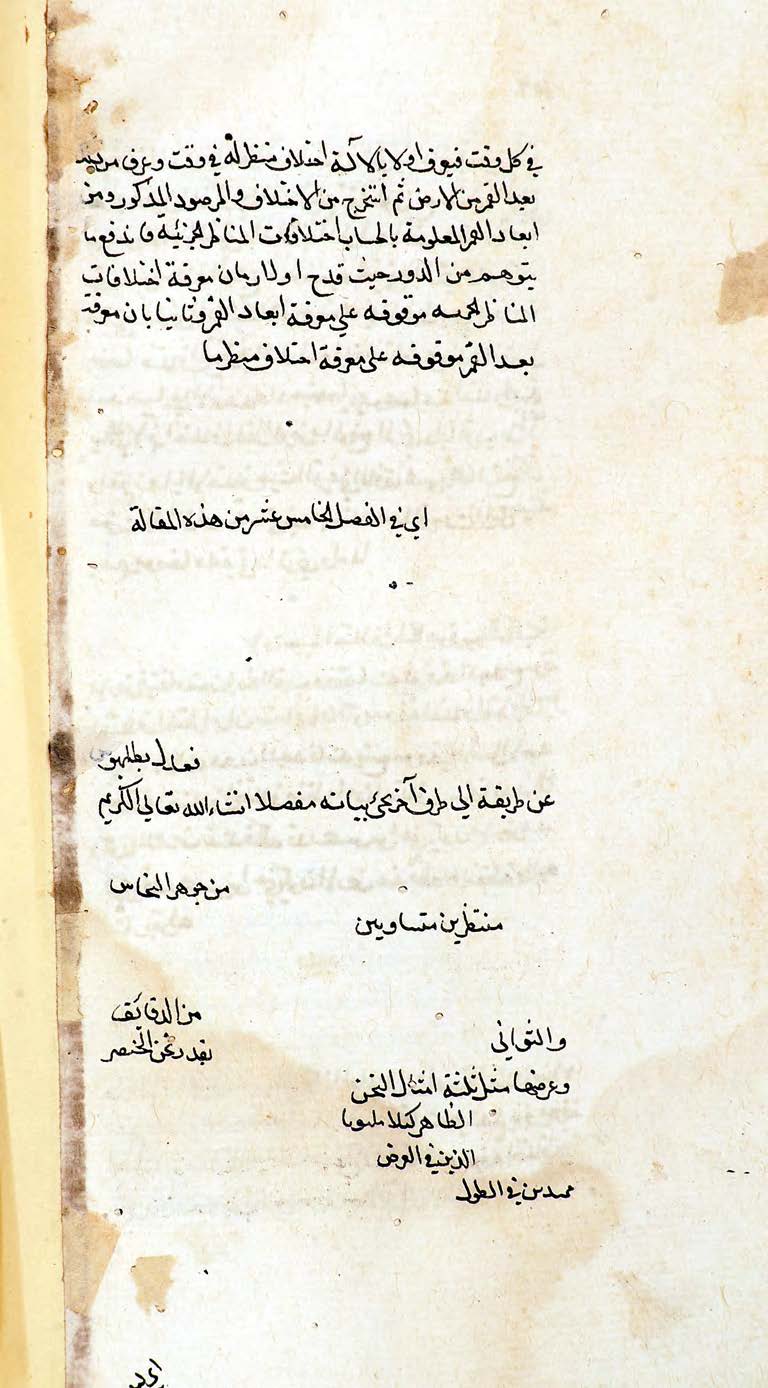 في كل وقت فيعرف اولا بالآلة اختلاف منظر له في وقت وعرف منه
بعد القمر من الارض ثم استخرج من الاختلاف المرصود المذكور ومن
ابعاد القمر المعلومة بالحساب اختلافات المناظر الجزئية فاندفع ما
يتوهم من الدور حيث قدح اولا بان معرفة اختلافات
المناظر موقوفه على معرفة ابعاد القمر وثانيا بان معرفة
بعد القمر موقوفه على معرفة اختلاف منظر ما
اي في الفصل الخامس عشر من هذه المقالة
فعدل بطلميوس
عن طريقة الى طرق آخر يجئ بيانه مفصلا انشاء الله تعالى الكريم
من جوهر النحاس
منتظرين متساويين
من الدقايق
والثواني
بقدر ثخن الخنصر
وعرضها مثل ثلثة امثال الثخن
الظاهر كتلا
الذين في العرض
في الطول